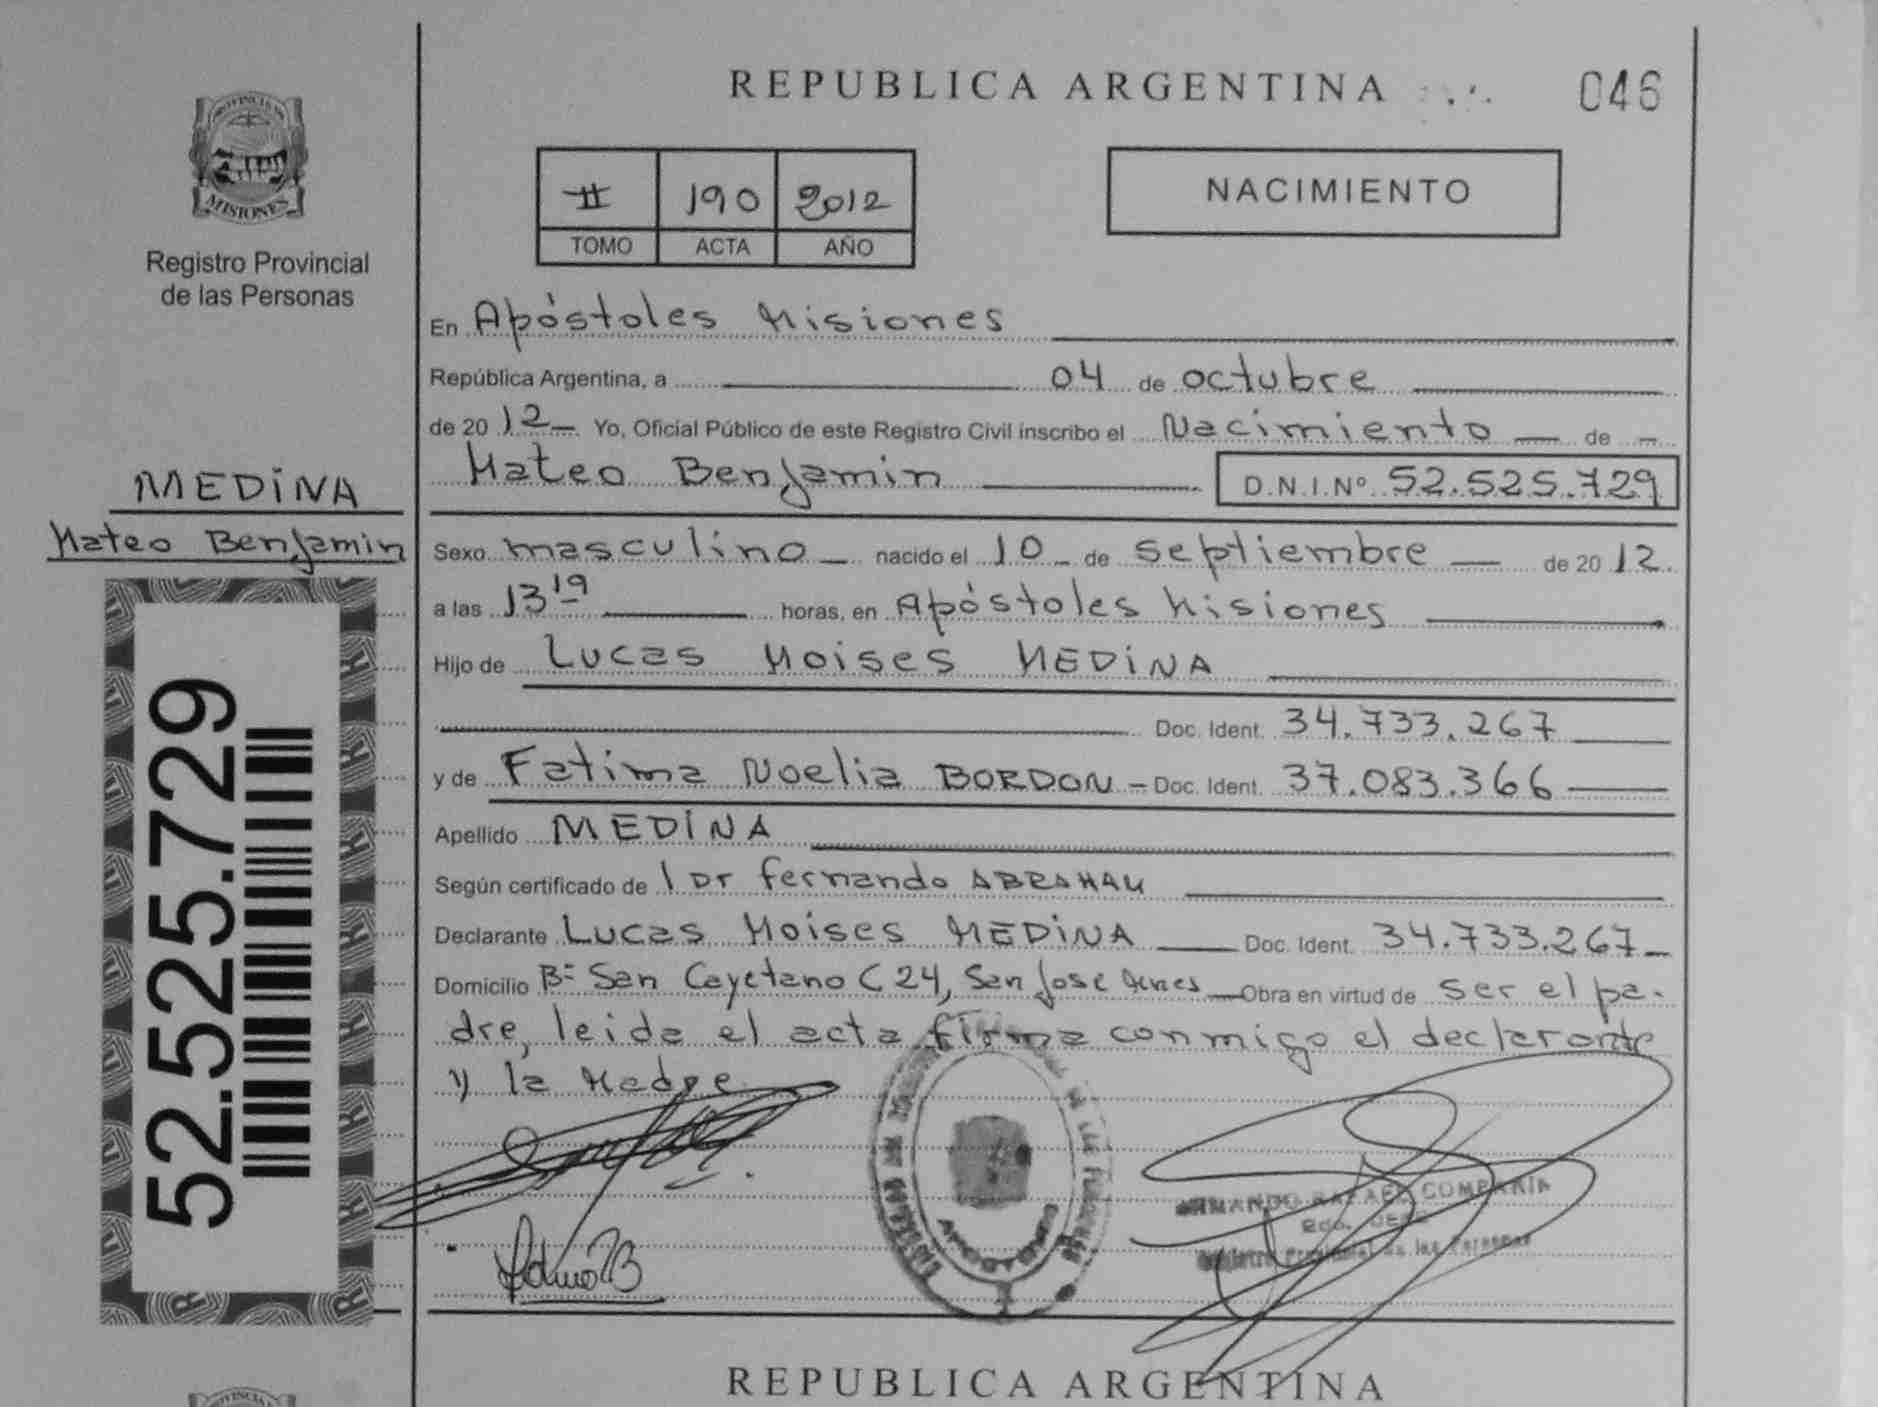 REPUBLICA ARGENTINA
046
PROVINCIA DE
MISIONES
Registro Provincial
de las Personas
II 190 2012
TOMO ACTA AÑO
NACIMIENTO
En Apóstoles Misiones
República Argentina, a 04 de octubre
de 2012 Yo, Oficial Público de este Registro Civil inscribo el Nacimiento de
Mateo Benjamin D.N.I.Nº 52.525.729
MEDINA
Mateo Benjamin
Sexo masculino nacido el 10 de septiembre de 2012.
a las 13 19 horas, en Apóstoles Misiones
Hijo de Lucas Moises MEDINA
Doc. Ident. 34.733.267
y de Fatima Noelia BORDON - Doc. Ident. 37.083.366
Apellido MEDINA
Según certificado de l Dr fernando ABRAHAM
Declarante Lucas Moises MEDINA Doc. Ident. 34.733.267
Domicilio Bº San Cayetano C 24, San Jose Obra en virtud de ser el pa-
dre, leida el acta firma conmigo el declarante
y la Madre
52.525.729
APOSTOLES
ARMANDO RAFAEL COMPARIN
Registro Provincial de las Personas
REPUBLICA ARGENTINA